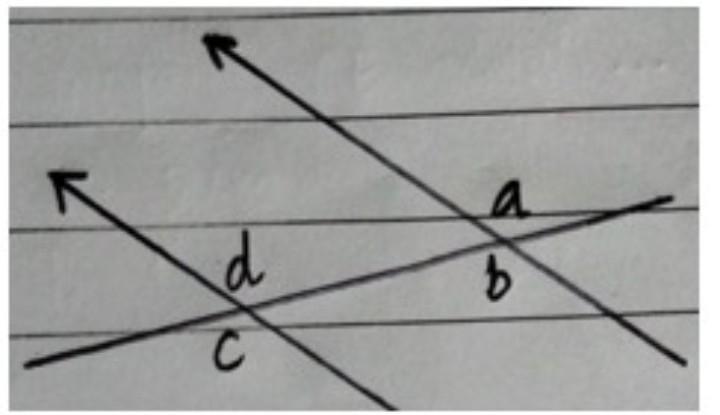 a
b
d
c